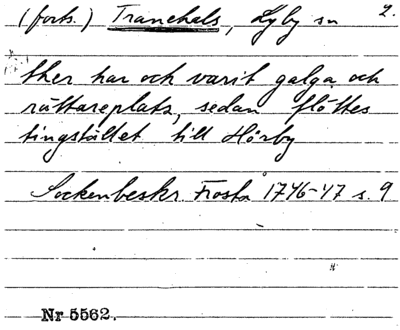 (forts.) Tranchals, Lyby sn 2.
ther har och varit galga och
rättareplats, sedan flöttes
tingstället till Hörby
Sockenbeskr. Frosta 1746-47 s. 9
Nr 5562.